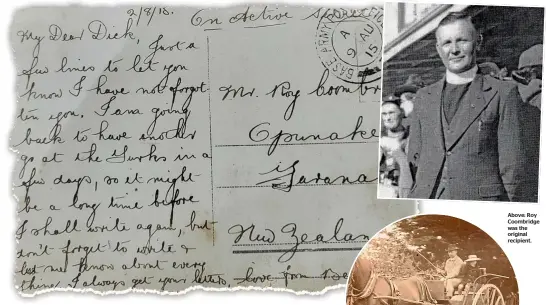 2/8/15.
My Dear Dick,
Just a
few lines to let you
know I have not forgot
ten you. I am going
back to have another
go at the Turks in a
few days, so it might
be a long time before
I shall write again, but
don't forget to write &
let me know about every
thing. I always get your letters. love from
On Active
Mr. Roy Coombri
Opunake
Tarana
New Zealan
BASE ARMY POST OFFICE
A
9 AU
15
Above: Roy
Coombridge
was the
original
recipient.